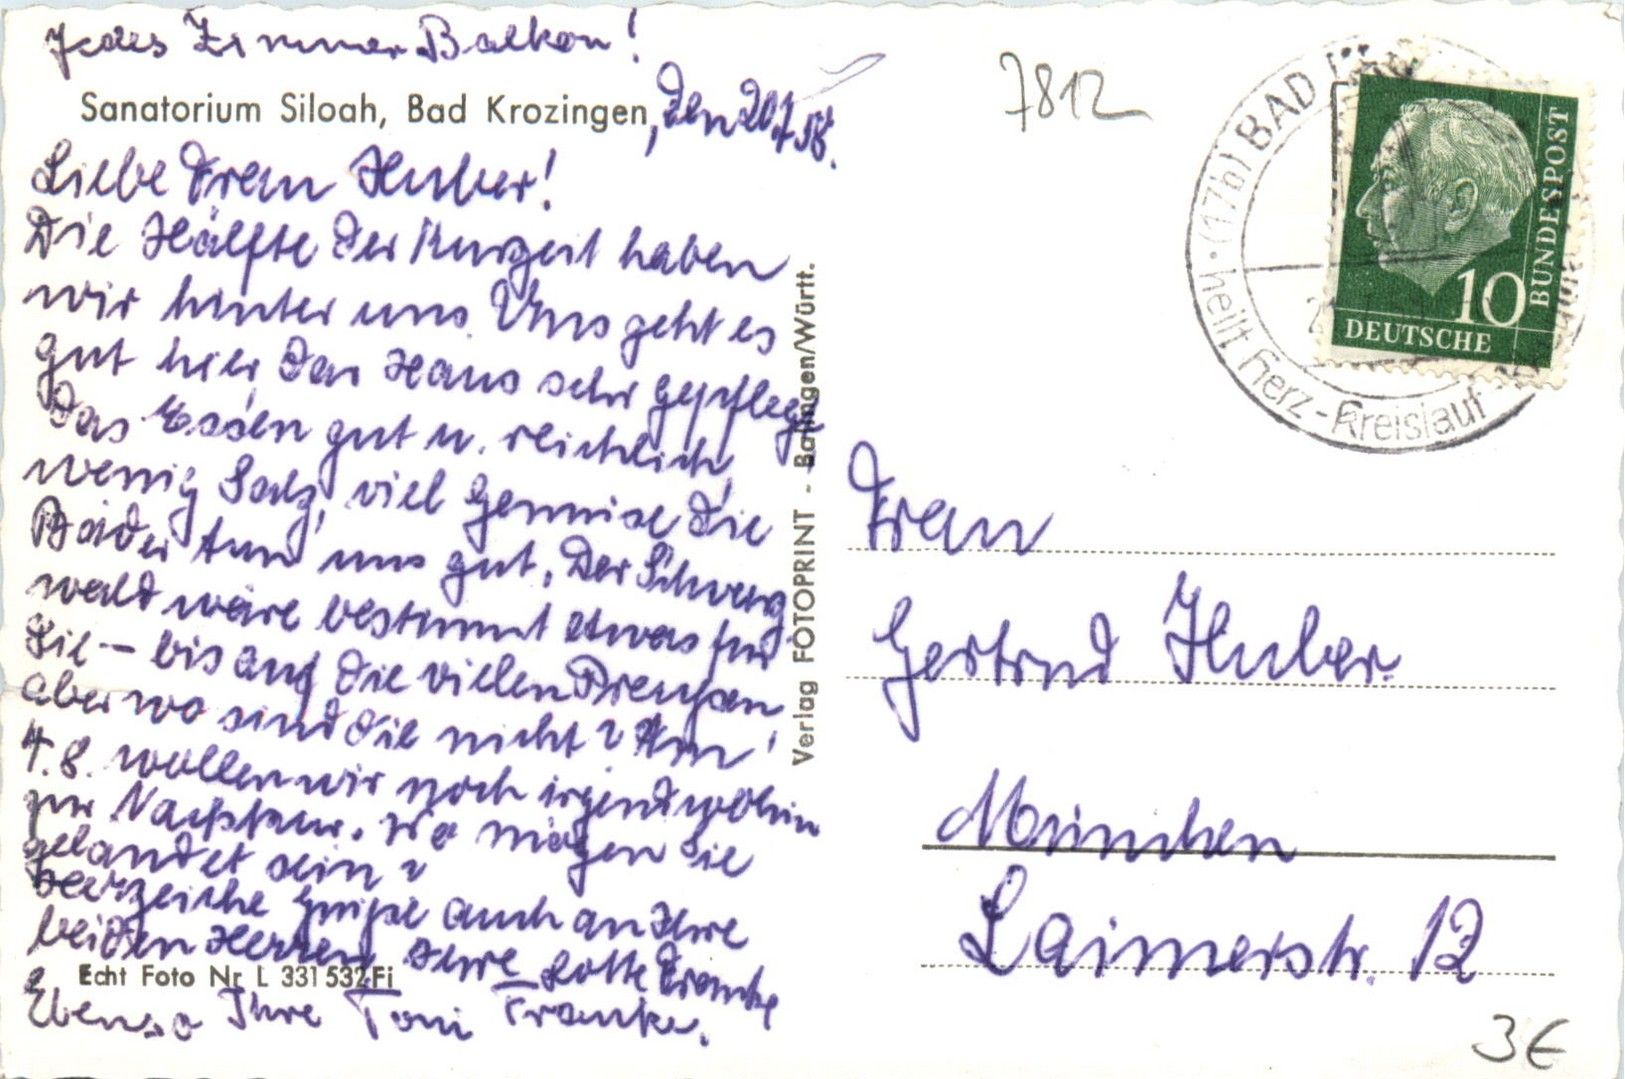 Jedes Zimmer Balkon!
Sanatorium Siloah, Bad Krozingen, den 20.7.58.
Liebe Frau Huber!
Die Hälfte der Kurzeit haben
wir hinter uns. Uns geht es
gut hier, das Haus sehr gepflegt
das Essen gut u. reichlich,
wenig Salz, viel Gemüse die
Bäder tun uns gut. Der Schwarz
wald wäre bestimmt etwas für
Sie – bis auf die vielen Preußen,
aber wo sind die nicht? Am
4.8. wollen wir noch irgendwohin
zur Nachkur. Wo mögen Sie
gelandet sein?
Herzliche Grüße auch an Ihre
beiden Herren Ihre Lotte Franke
Echt Foto Nr. L 331 532 Fi
Ebenso Ihre Toni Franke.
Verlag FOTOPRINT - Balingen/Württ.
7812
(17b) BAD
heilt Herz-Kreislauf
DEUTSCHE
BUNDESPOST
10
Frau
Gertrud Huber
München
Laimerstr. 12
3€